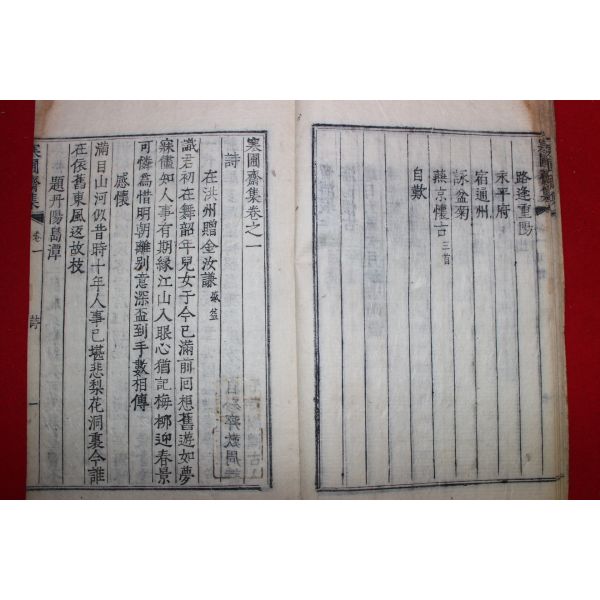 寒圃齋集
路逢重陽
永平府
宿通州
詠盆菊
燕京懷古 三首
自歎
寒圃齋集卷之一
詩
在洪州贈金汝謙 盛益
識君初在舞韶年兒女于今已滿前回想舊遊如夢
寐儘知人事有期緣江山入眼心猶記梅柳迎春景
可憐爲惜明朝離別意深盃到手數相傳
感懷
滿目山河似昔時十年人事已堪悲梨花洞裏今誰
在依舊東風返故枝
題丹陽島潭
寒圃齋集 卷一 詩 一